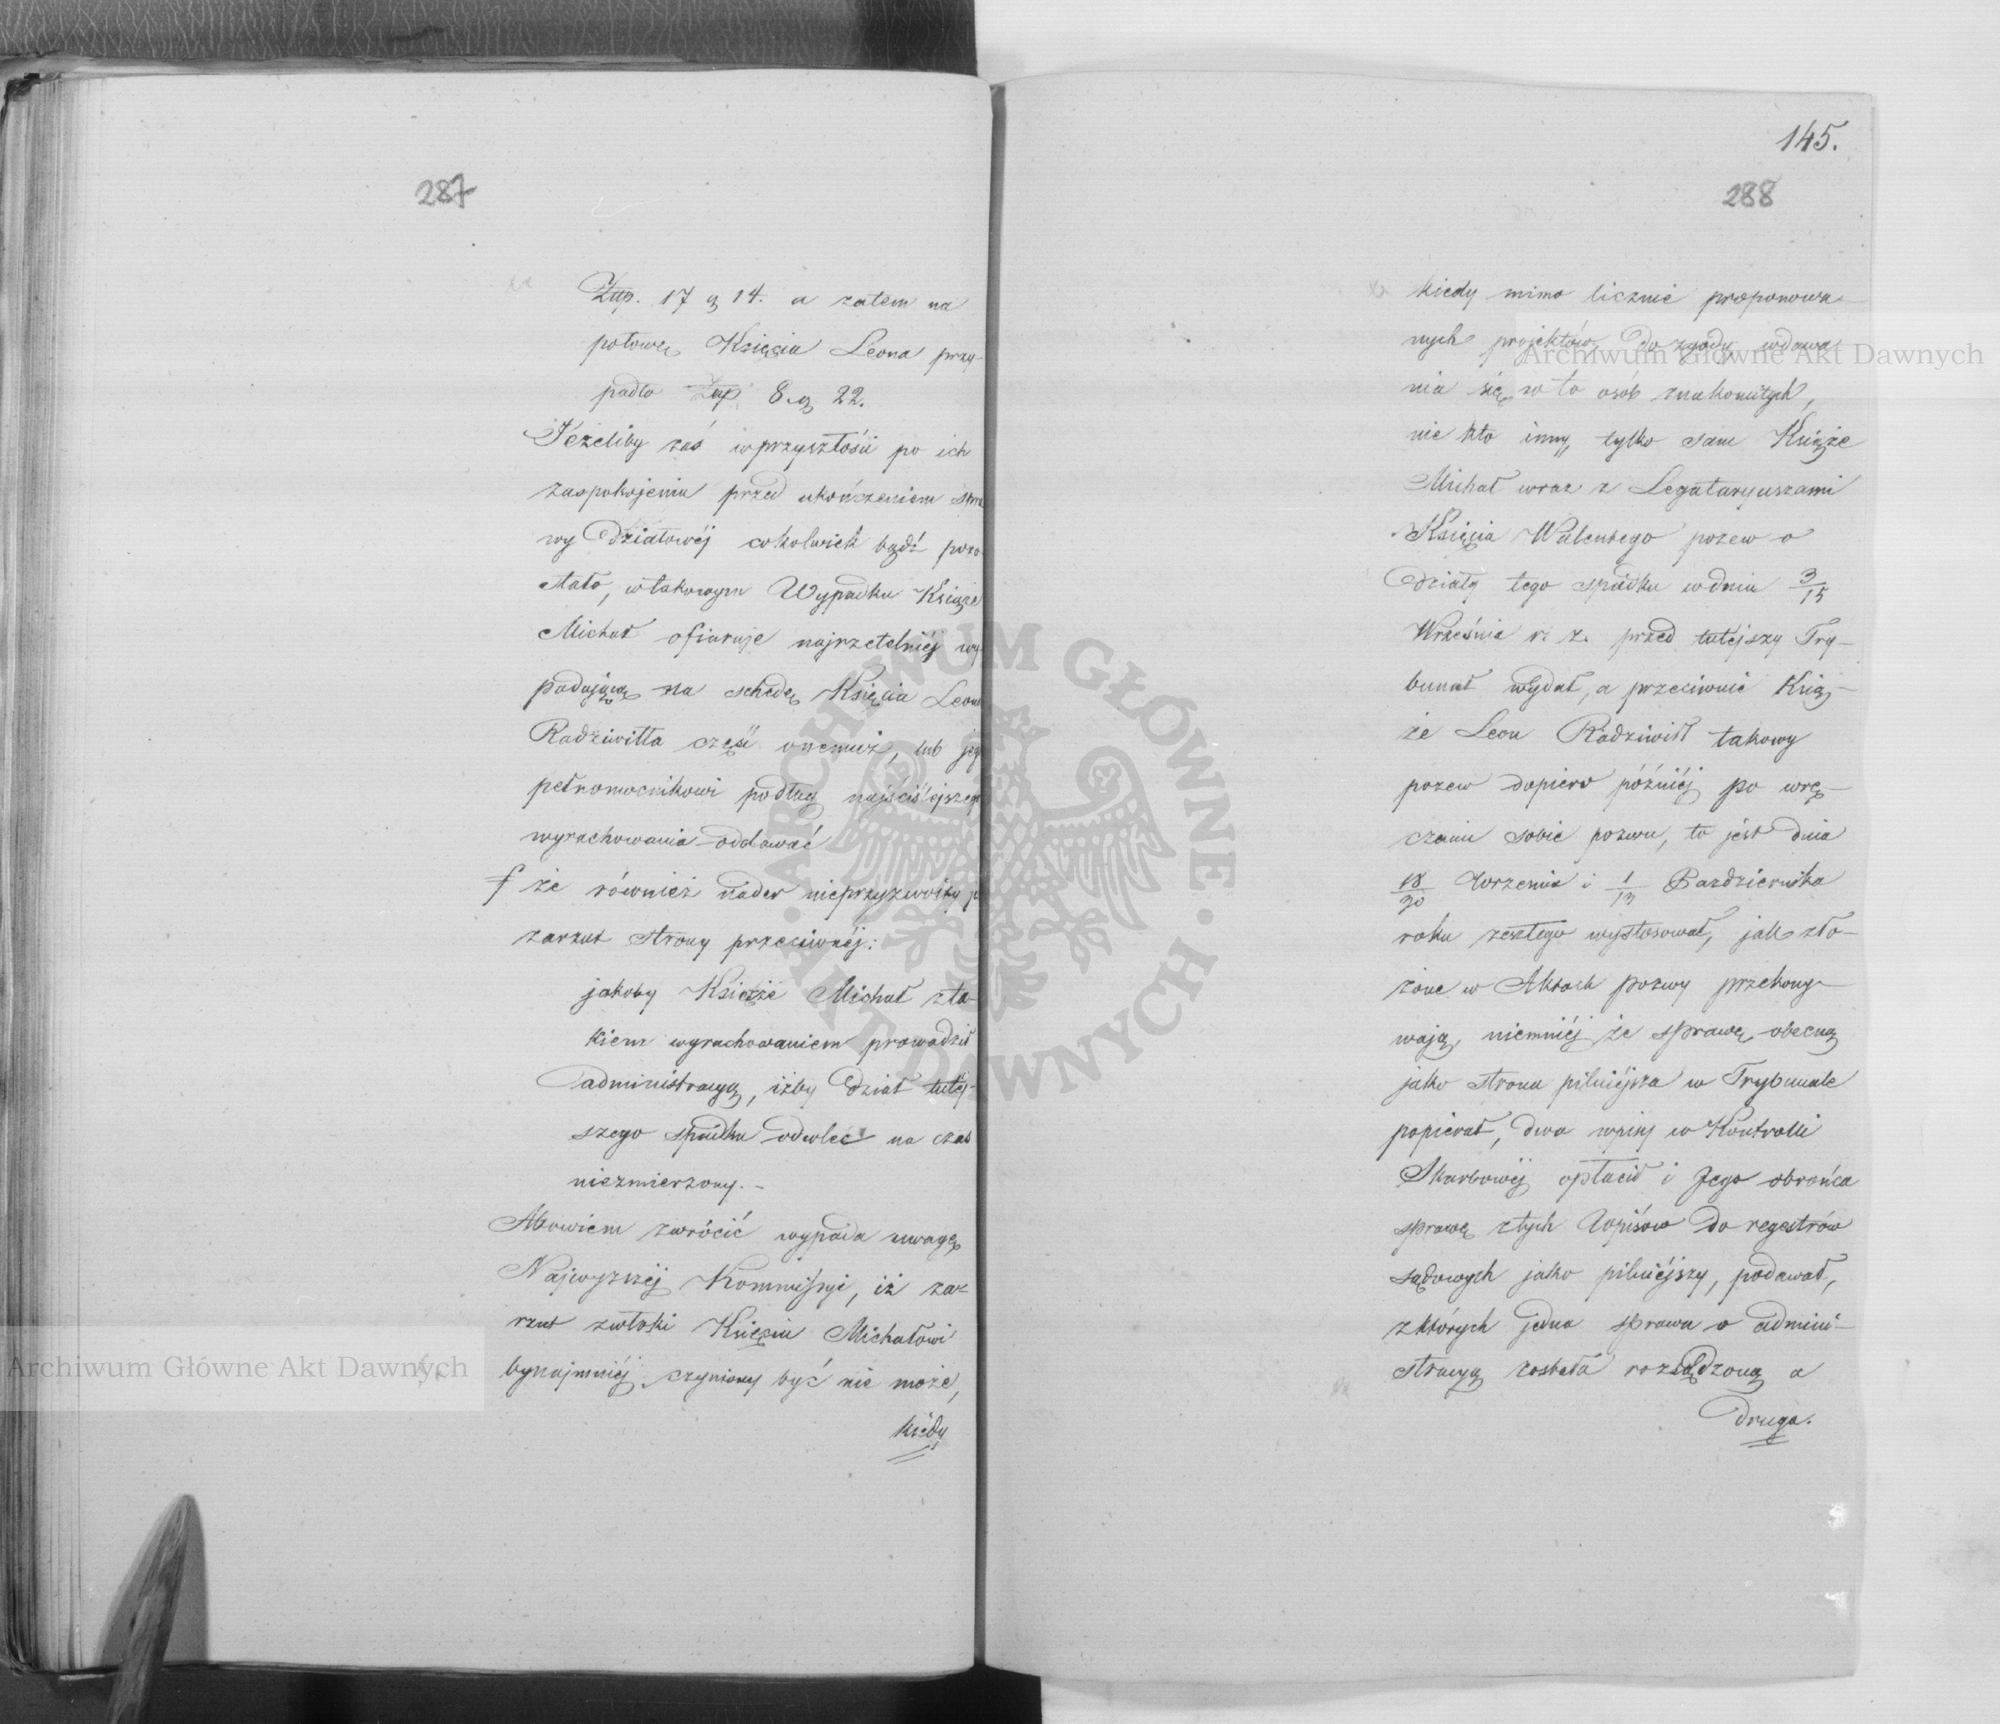 287
Złtp. 17 g 14. a zatem na
połowę Księcia Leona przy-
padło Złp 8. g 22.
Jeżeliby zaś w przyszłości po ich
zaspokojeniu przed ukończeniem spra
wy Działowéj cokolwiek bądź pozo
stało, w takowym Wypadku Książe
Michał ofiaruje najrzetelniéj wy-
padającą na schedę Księcia Leona
Radziwiłła część onemuż, lub jego
pełnomocnikowi podług najściślejszego
wyrachowania oddawać
f że również nader nieprzyzwoity
zarzut strony przeciwnéj:
jakoby Książe Michał z ta-
kiem wyrachowaniem prowadził
administracyą, iżby Dział tutéj-
szego spadku odwlec na czas
niezmierzony. –
Albowiem zwrócić wypada uwagę
Najwyższéj Kommissyi, iż za-
rzut zwłoki Księciu Michałowi
bynajmniéj czyniony być nie może,
kiedy
145.
288
kiedy mimo licznie proponowa-
nych projektów do zgody wdawa-
nia się w to osób znakomitych,
nie kto inny, tylko sam Książe
Michał wraz z Legataryuszami
Księcia Walentego pozew o
Działy tego spadku w dniu 3/15
Września r. z. przed tutéjszy Try-
bunał wydał, a przeciwnie Ksią-
że Leon Radziwiłł takowy
pozew dopiero późniéj po wrę-
czeniu sobie pozwu, to jest dnia
18/30 Wrzenia i 1/13 Pazdziernika
roku zeszłego wystosował, jak zło-
żone w Aktach pozwy przekony-
wają, niemniéj że sprawę obecną
jako strona pilniéjsza w Trybunale
popierał, dwa wpisy w Kontrolli
Skarbowéj opłacił i Jego obrońca
sprawę z tych Wpisów do regestrów
sądowych jako pilniéjszy, podawał,
z których jedna sprawa o admini-
stracyą została rozsądzoną a
Druga.
Archiwum Główne Akt Dawnych
Archiwum Główne Akt Dawnych
ARCHIWUM GŁÓWNE · AKT DAWNYCH ·